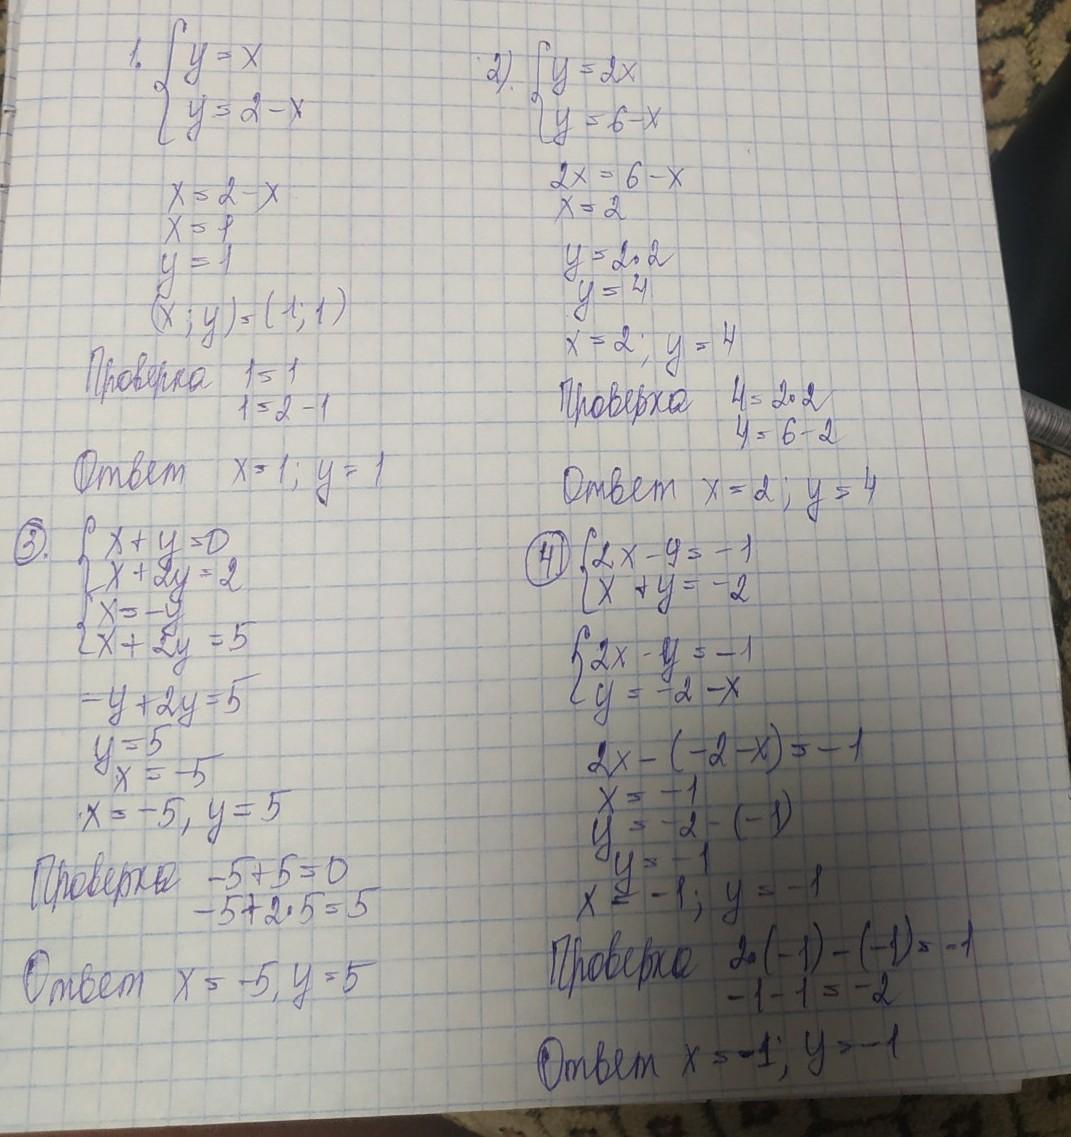 1. y = x
y = 2 - x
x = 2 - x
x = 1
y = 1
(x; y) = (1; 1)
Проверка 1 = 1
1 = 2 - 1
Ответ x = 1; y = 1
2) y = 2x
y = 6 - x
2x = 6 - x
x = 2
y = 2·2
y = 4
x = 2; y = 4
Проверка 4 = 2·2
4 = 6 - 2
Ответ x = 2; y = 4
3. x + y = 0
x + 2y = 2
x = -y
x + 2y = 5
-y + 2y = 5
y = 5
x = -5
x = -5, y = 5
Проверка -5 + 5 = 0
-5 + 2·5 = 5
Ответ x = -5, y = 5
4 2x - y = -1
x + y = -2
2x - y = -1
y = -2 - x
2x - (-2 - x) = -1
x = -1
y = -2 - (-1)
y = -1
x = -1; y = -1
Проверка 2·(-1) - (-1) = -1
-1 - 1 = -2
Ответ x = -1; y = -1